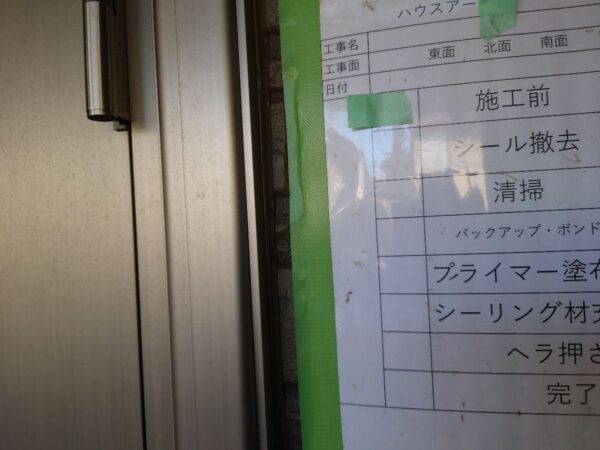 ハウスアー
工事名
工事面 東面 北面 南面
日付
施工前
シール撤去
清掃
バックアップ・ボンド
プライマー塗布
シーリング材充
ヘラ押さ
完了